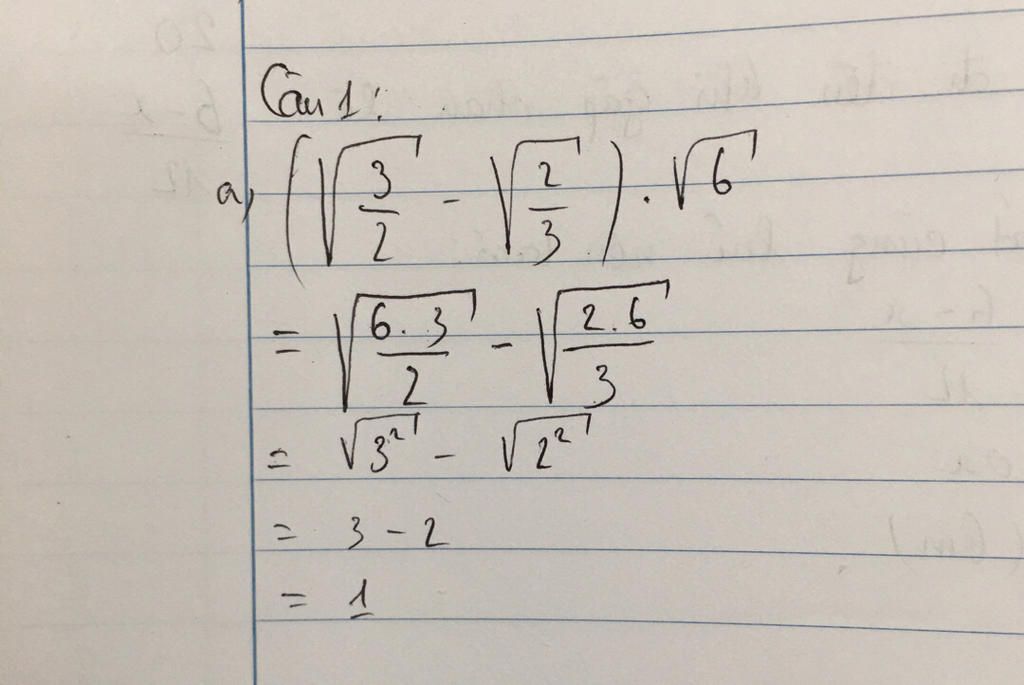 Câu 1:
a, (√(3/2) - √(2/3)) . √6
= √(6.3/2) - √(2.6/3)
= √3² - √2²
= 3 - 2
= 1